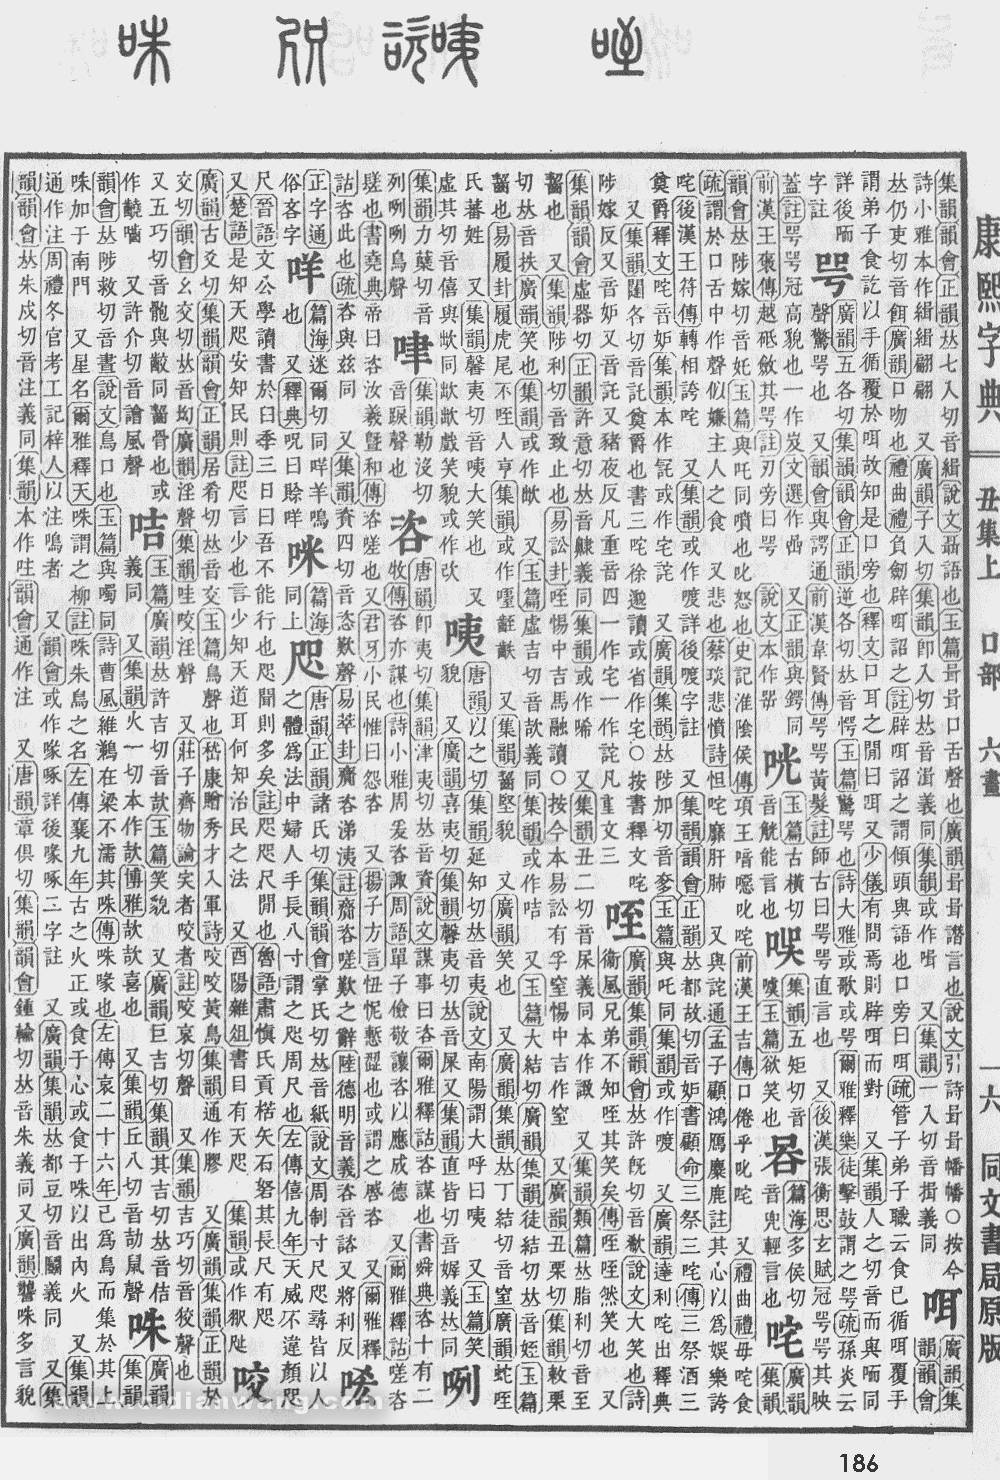 康熙字典 丑集上 口部 六畫 一六 同文書局原版
集韻韻會正韻𠀤七入切音緝說文聶語也玉篇咠咠口舌聲也廣韻咠咠譖言也說文引詩咠咠幡幡○按今
詩小雅本作緝緝翩翩 又廣韻子入切集韻卽入切𠀤音湒義同集韻或作㗱 又集韻一入切音揖義同 咡 廣韻集韻韻會
𠀤仍吏切音餌廣韻口吻也禮曲禮負劒辟咡詔之註辟咡詔之謂傾頭與語也口旁曰咡疏管子弟子職云食已循咡覆手
謂弟子食訖以手循覆於咡故知是口旁也釋文口耳之閒曰咡 又少儀有問焉則辟咡而對 又集韻人之切音而與胹同
詳後胹字註 咢 廣韻五各切集韻韻會正韻逆各切𠀤音愕玉篇驚咢也詩大雅或歌或咢爾雅釋樂徒擊鼓謂之咢疏孫炎云
聲驚咢也 又韻會與諤通前漢韋賢傳咢咢黃髮註師古曰咢咢直言也 又後漢張衡思玄賦冠咢咢其映
蓋註咢咢冠高貌也一作岌文選作嵒 又正韻與鍔同
前漢王褒傳越砥斂其咢註刃旁曰咢 說文本作㖾 咣 玉篇古橫切音觥能言也 㗇 集韻五矩切音噳玉篇欲笑也 㖈 篇海多侯切音兜輕言也 咤 廣韻集韻
韻會𠀤陟嫁切音奼玉篇與吒同噴也叱怒也史記淮隂侯傳項王喑噁叱咤前漢王吉傳口倦乎叱咤 又禮曲禮毋咤食
疏謂於口舌中作聲似嫌主人之食 又悲也蔡琰悲憤詩怛咤糜肝肺 又與詫通孟子顧鴻鴈麋鹿註其心以爲娛樂誇
咤後漢王符傳轉相誇咤 又集韻或作喥詳後喥字註 又集韻韻會正韻𠀤都故切音妒書顧命三祭三咤傳三祭酒三
奠爵釋文咤音妒集韻本作㓃或作宅詫 又廣韻集韻𠀤陟加切音奓玉篇與吒同集韻或作喥 又廣韻達利咤出釋典
又集韻闥各切音託奠爵也書三咤徐邈讀或省作宅○按書釋文咤
陟嫁反又音妒又豬夜反凡重音四一作宅一作詫凡重文三 咥 廣韻集韻韻會𠀤許旣切音欷說文大笑也詩
衞風兄弟不知咥其笑矣傳咥咥然笑也 又
集韻韻會虛器切正韻許意切𠀤音齂義同集韻或作唏 又集韻丑二切音杘義同本作諔 又集韻類篇𠀤脂利切音至
齧也 又集韻陟利切音致止也易訟卦咥惕中吉馬融讀○按今本易訟有孚窒惕中吉作窒 又廣韻丑栗切集韻敕栗
切𠀤音抶廣韻笑也集韻或作㰡 又玉篇虛吉切音欯義同集韻或作咭 又玉篇大結切廣韻集韻徒結切𠀤音姪玉篇
齧也易履卦履虎尾不咥人亨集韻或作㘿䶔𪗨 又集韻齧堅貌 又廣韻笑也 又廣韻集韻𠀤丁結切音窒廣韻蛇咥
氏蕃姓 又集韻馨夷切音咦大笑也 又
虛其切音僖與㰥同㰥㰥戲笑貌或作改 咦 唐韻以之切集韻延知切𠀤音夷說文南陽謂大呼曰咦 又玉篇笑
貌 又廣韻喜夷切集韻馨夷切𠀤音屎又集韻直皆切音㜰義𠀤同 咧
集韻力蘖切音列咧咧鳥聲 嗶 集韻勒沒切音踤聲也 咨 唐韻卽夷切集韻津夷切𠀤音資說文謀事曰咨爾雅釋詁咨謀也書舜典咨十有二
牧傳咨亦謀也詩小雅周爰咨諏周語單子儉敬讓咨以應成德 又爾雅釋詁嗟咨
䰠也書堯典帝曰咨汝羲曁和傳咨嗟也又君牙小民惟曰怨咨 又揚子方言忸怩慙𡫲也或謂之㦗咨 又爾雅釋
詁咨此也疏咨與兹同 又集韻資四切音恣歎聲易萃卦齎咨涕洟註齎咨嗟歎之辭陸德明音義咨音諮又將利反 唏
正字通俗吝字 咩 篇海迷爾切同哶羊鳴 咪 篇海同上 咫 唐韻正韻諸氏切集韻韻會掌氏切𠀤音紙說文周制寸尺咫尋皆以人
也 又釋典呪曰賖咩 之體爲法中婦人手長八寸謂之咫周尺也左傳僖九年天威不違顏咫
尺晉語文公學讀書於臼季三日曰吾不能行也咫聞則多矣註咫咫尺閒也魯語肅愼氏貢楛矢石砮其長尺有咫
又楚語是知天咫安知民則註咫言少也言少知天道耳何知治民之法 又酉陽雜俎書目有天咫 集韻或作㰞𨑫 咬
廣韻古爻切集韻韻會正韻居肴切𠀤音交玉篇鳥聲也嵆康贈秀才入軍詩咬咬黃鳥集韻通作膠 又廣韻集韻正韻於
交切韻會幺交切𠀤音坳廣韻淫聲集韻哇咬淫聲 又莊子齊物論宎者咬者註咬哀切聲 又集韻吉巧切音狡聲也
又五巧切音骲與齩同齧骨也或作齩嚙 咭 玉篇廣韻𠀤許吉切音欯玉篇笑貌 又廣韻巨吉切集韻其吉切𠀤音佶
又許介切音譮風聲 義同 又集韻火一切本作欯博雅欯欯喜也 又集韻丘八切音劼鼠聲 咮 廣韻集韻
韻會𠀤陟救切音晝說文鳥口也玉篇與噣同詩曹風維鵜在梁不濡其咮傳咮喙也左傳哀二十六年己爲烏而集於其上
咮加于南門 又星名爾雅釋天咮謂之柳註咮朱鳥之名左傳襄九年古之火正或食于心或食于咮以出內火 又集韻
通作注周禮冬官考工記梓人以注鳴者 又韻會或作喙啄詳後喙啄二字註 又廣韻集韻𠀤都豆切音鬭義同 又集
韻韻會𠀤朱戍切音注義同集韻本作咮韻會通作注 又唐韻章俱切集韻韻會鍾輸切𠀤音朱義同又廣韻譻咮多言貌
186